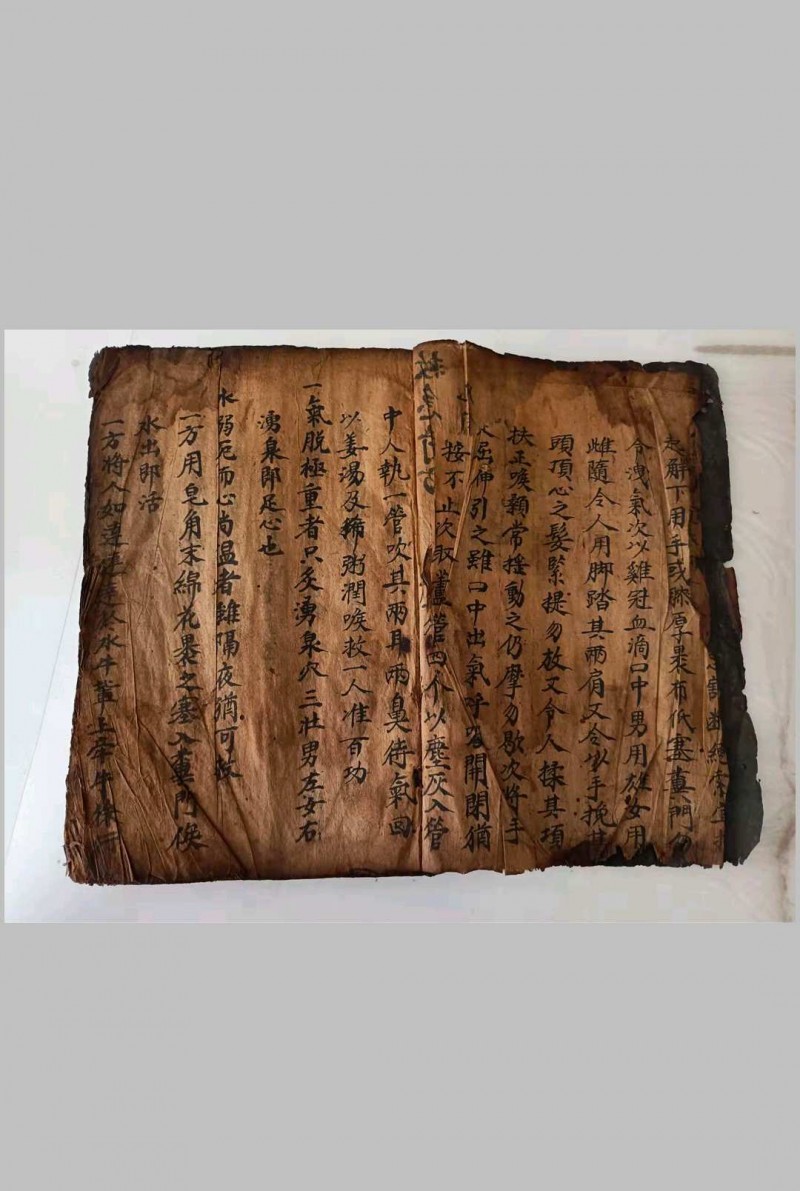 起解下用手或膝厚裹布低塞糞門勿
令洩氣次以雞冠血滴口中男用雄女用
雌隨令人用脚踏其兩肩又令以手挽其
頭頂心之髮緊提勿放又令人揉其項
扶正喉顙常揺動之仍摩勿歇次将手
屈伸引之雖口中出氣呼吸開閉猶
按不止次取蘆管四个以塵灰入管
救急
中人執一管吹其兩耳兩鼻待氣回
以姜湯及稀粥潤喉救一人准百功
一氣脱極重者只灸湧泉穴三壮男左女右
湧泉即足心也
水弱死而心尚温者雖隔夜猶可救
一方用皂角末綿花裹之塞入糞門俟
水出即活
一方将人如水牛背上牽牛徐